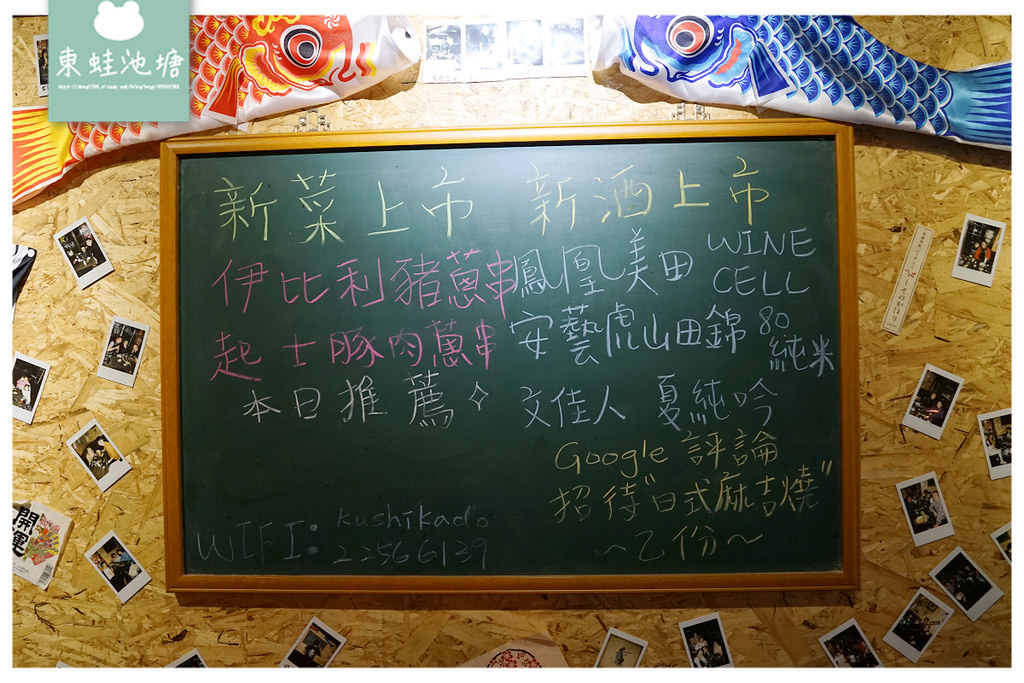 東蛙池塘
新菜上市
伊比利豬蔥串
起士豚肉蔥串
本日推薦
WIFI: kushikado
22566139
新酒上市
鳳凰美田 WINE CELL
安藝虎山田錦 80 純米
文佳人 夏純吟
Google 評論
招待"日式麻吉燒"
~乙份~
開運